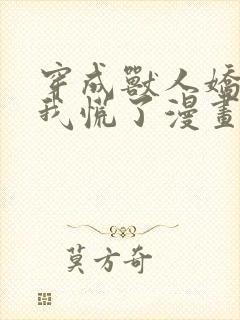 穿成獸人嬌
我慌了漫畫
莫方奇